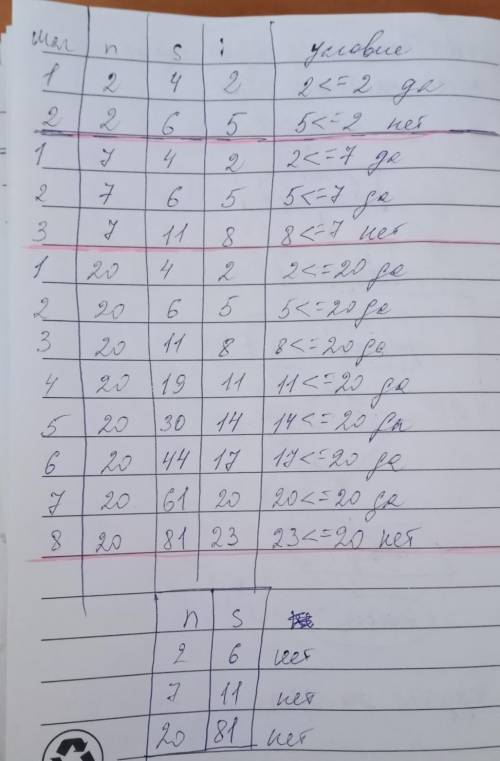 шаг n s i условие
1 2 4 2 2<=2 да
2 2 6 5 5<=2 нет
1 7 4 2 2<=7 да
2 7 6 5 5<=7 да
3 7 11 8 8<=7 нет
1 20 4 2 2<=20 да
2 20 6 5 5<=20 да
3 20 11 8 8<=20 да
4 20 19 11 11<=20 да
5 20 30 14 14<=20 да
6 20 44 17 17<=20 да
7 20 61 20 20<=20 да
8 20 81 23 23<=20 нет
n s
2 6 нет
7 11 нет
20 81 нет